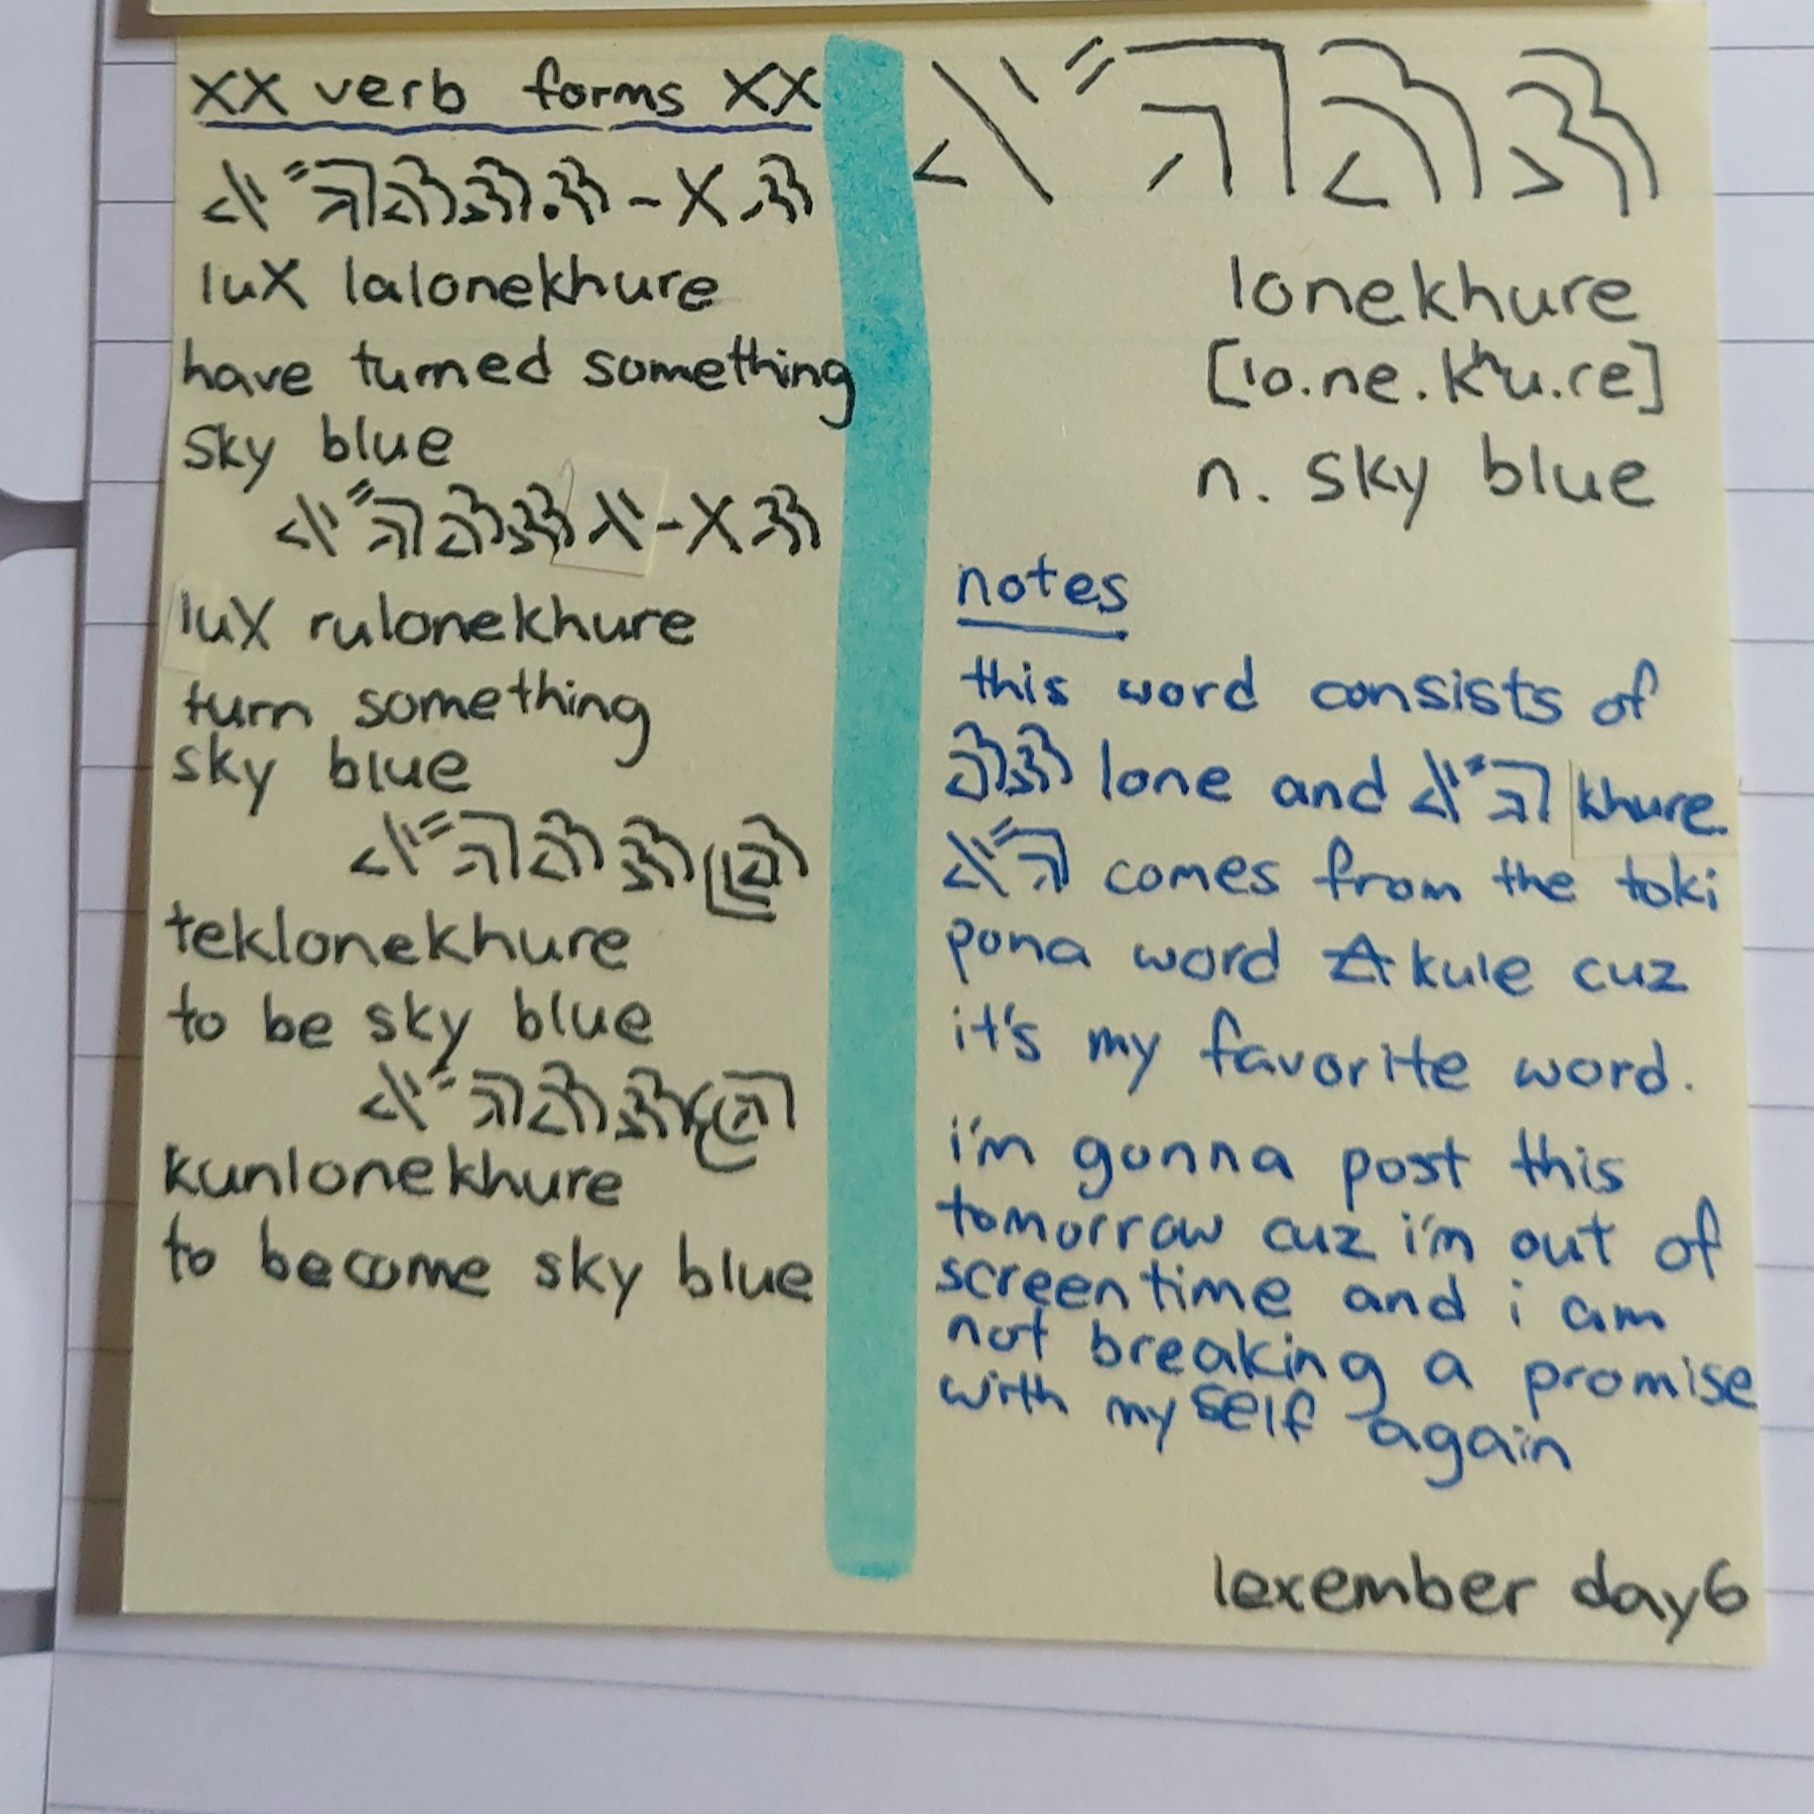 xx verb forms xx
-X
luX lalonekhure
have turned something
sky blue
-X
luX rulonekhure
turn something
sky blue
teklonekhure
to be sky blue
kunlonekhure
to become sky blue
lonekhure
[lo.ne.kʰu.re]
n. sky blue
notes
this word consists of
lone and khure.
comes from the toki
pona word kule cuz
it's my favorite word.
i'm gonna post this
tomorrow cuz i'm out of
screentime and i am
not breaking a promise
with myself again
lexember day6